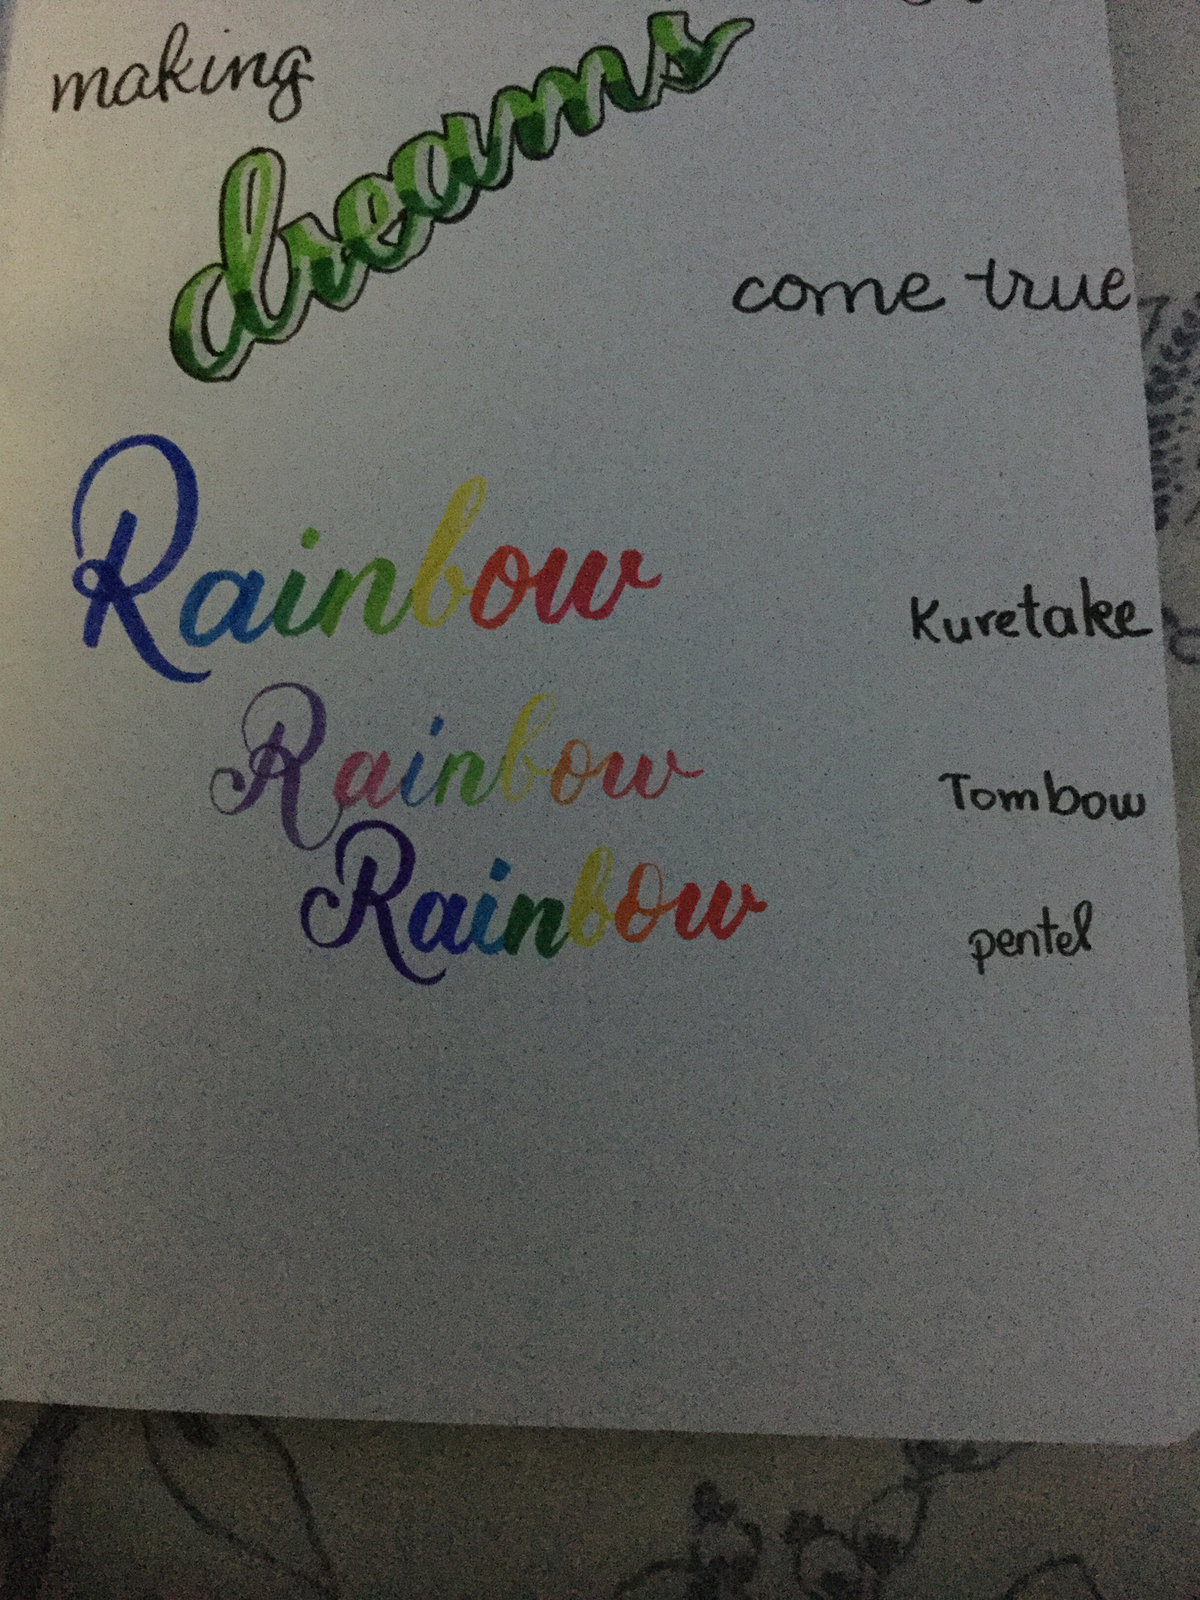 making
dreams
come true
Rainbow Kuretake
Rainbow Tombow
Rainbow pentel